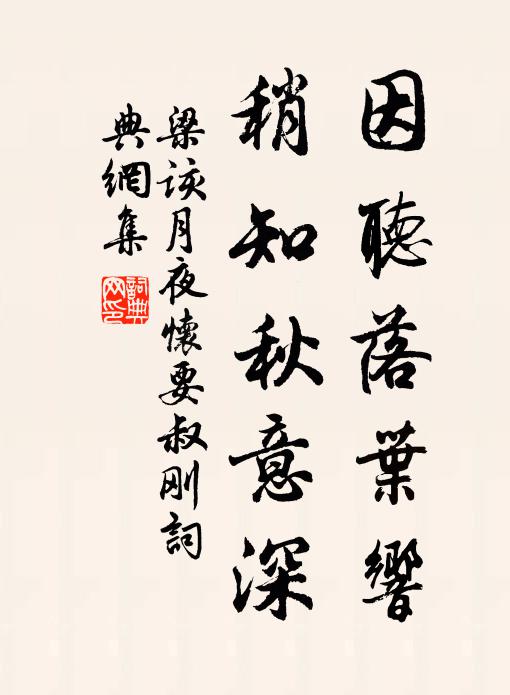 因聽落葉響
稍知秋意深
梁該月夜懷要叔剛詞
典網集
詞典
网印